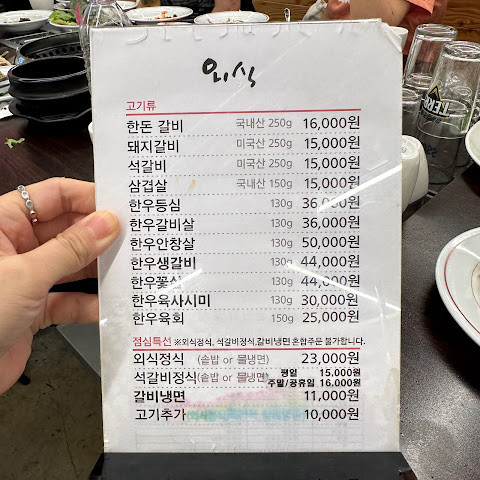 외식
고기류
한돈 갈비 국내산 250g 16,000원
돼지갈비 미국산 250g 15,000원
석갈비 미국산 250g 15,000원
삼겹살 국내산 150g 15,000원
한우등심 130g 36,000원
한우갈비살 130g 36,000원
한우안창살 130g 50,000원
한우생갈비 130g 44,000원
한우꽃심 130g 44,000원
한우육사시미 130g 30,000원
한우육회 150g 25,000원
점심특선 ※외식정식, 석갈비정식,갈비냉면 혼합주문 불가합니다.
외식정식 (솥밥 or 물냉면) 23,000원
석갈비정식(솥밥 or 물냉면) 평일 15,000원
주말/공유일 16,000원
갈비냉면 11,000원
고기추가 10,000원